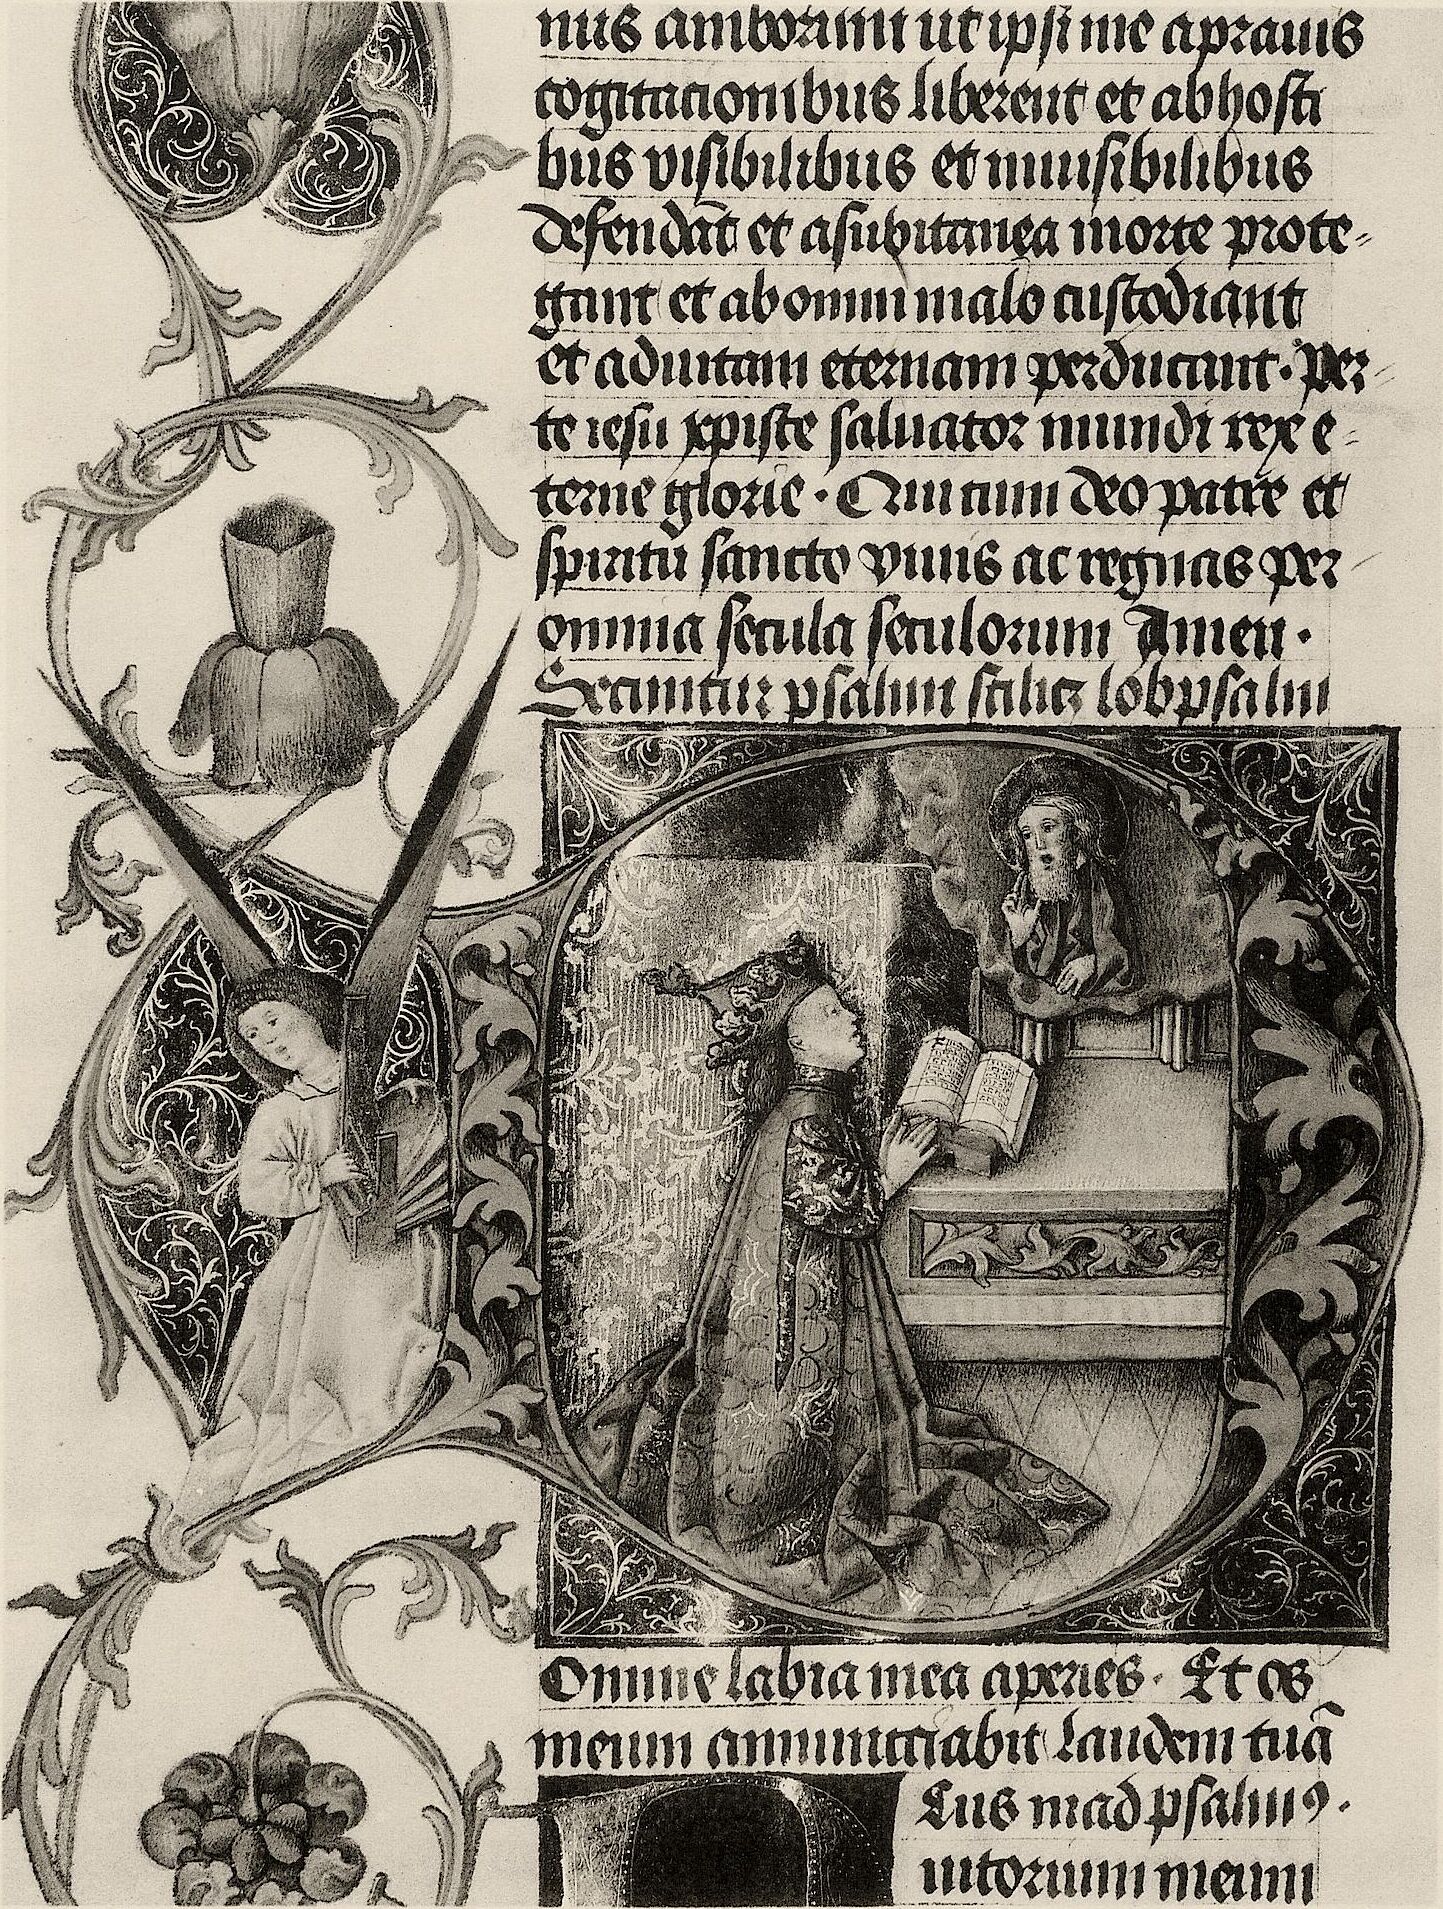 nus amborum ut ipsi me a prauis
cogitacionibus liberent et ab hosti
bus visibilibus et inuisibilibus
defendāt et a subitanea morte prote=
gant et ab omni malo custodiant
et ad uitam eternam perducant. Per=
te iesu xpiste saluator mundi rex e=
terne glorie. Qui cum deo patre et
spiritu sancto viuis ac regnas per
omnia secula seculorum Amen.
Secuntur psalmi scilicz lobpsalm
Omine labia mea aperies. Et os
meum annunctiabit laudem tuā
Eus in ad psalmꝰ.
iutorium meum